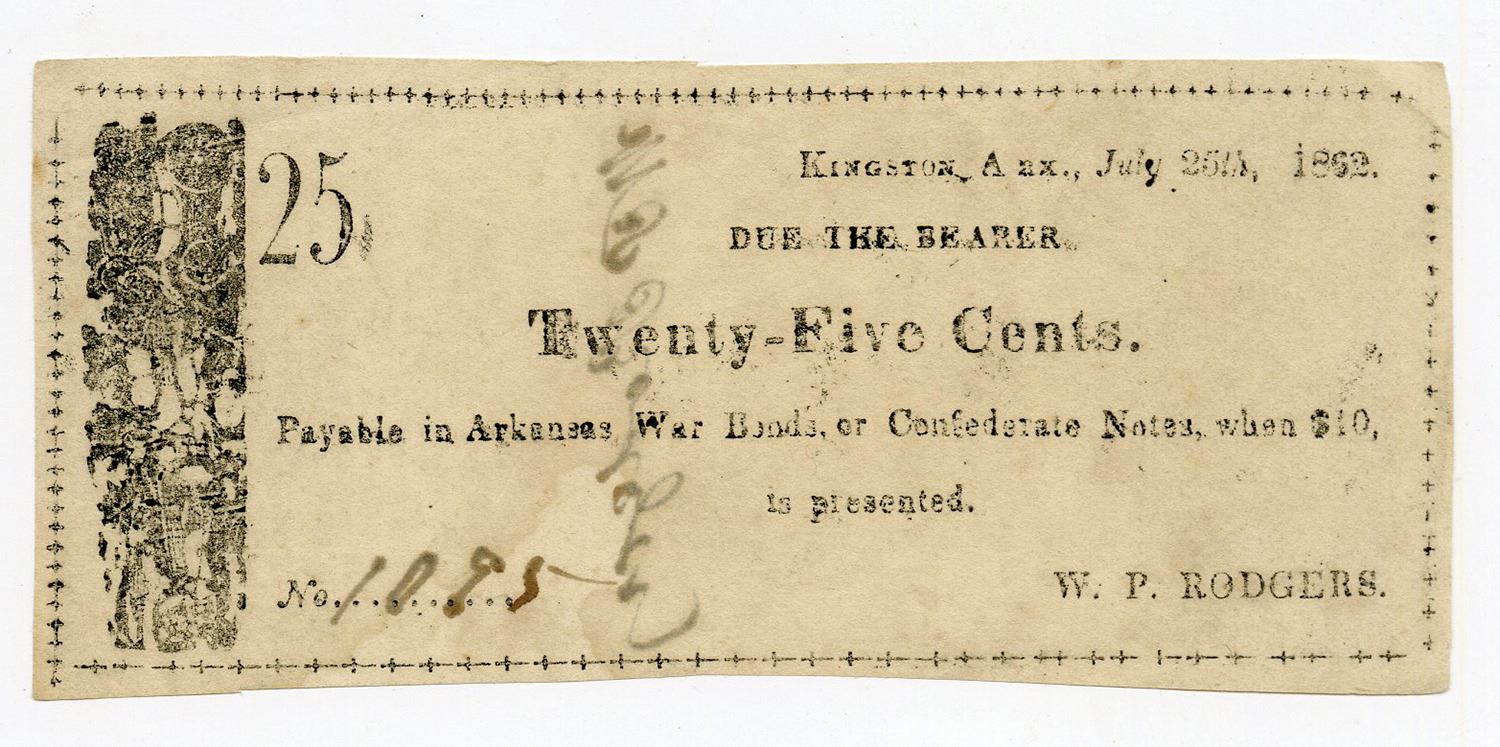 25
KINGSTON, ARK., July 25th, 1862.
DUE THE BEARER,
Twenty-Five Cents.
Payable in Arkansas War Bonds, or Confederate Notes, when $10,
is presented.
No. 1095
W. P. RODGERS.